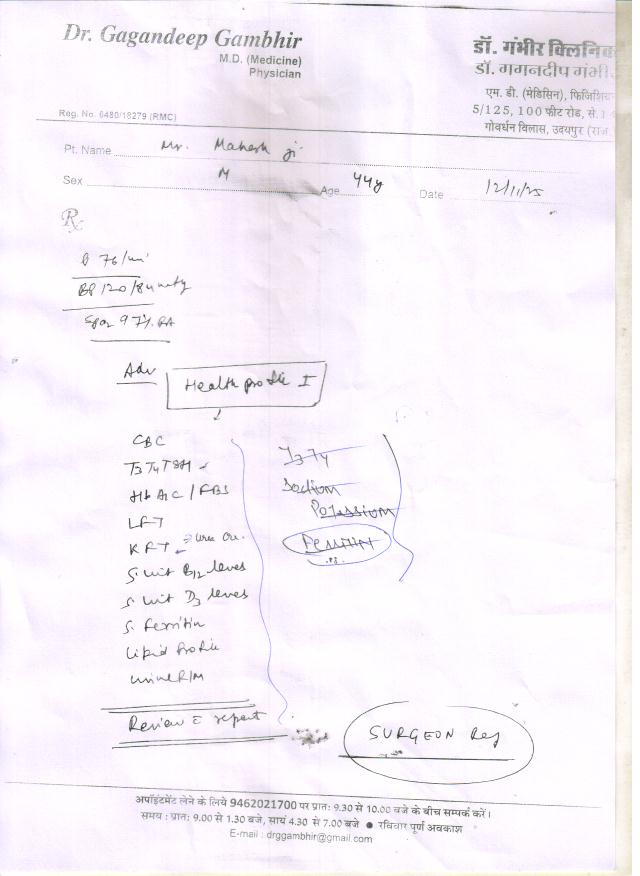 Dr. Gagandeep Gambhir
M.D. (Medicine)
Physician
Reg. No. 6480/18279 (RMC)
डॉ. गंभीर क्लिनिक
डॉ. गगनदीप गंभी
एम. डी. (मेडिसिन), फिजिशिय
5/125, 100 फीट रोड, से. 14
गोवर्धन विलास, उदयपुर (राज
Pt. Name Mr. Mahesh ji
Sex M Age 44y Date 12/11/25
Rx
76/
BP 120/84
Spo2 97% RA
Adv Health profile I
CBC
T3 T4 TSH
HbA1C / FBS
LFT
KFT Urea Cre.
S. vit B12 leves
S. vit D3 leves
S. Ferritin
Lipid Profile
Urine R/M
Review c report
T3 T4
Sodium
Potassium
Ferritin
SURGEON Ref
अपॉइंटमेंट लेने के लिये 9462021700 पर प्रातः 9.30 से 10.00 बजे के बीच सम्पर्क करें।
समय : प्रातः 9.00 से 1.30 बजे, सायं 4.30 से 7.00 बजे ● रविवार पूर्ण अवकाश
E-mail : drggambhir@gmail.com